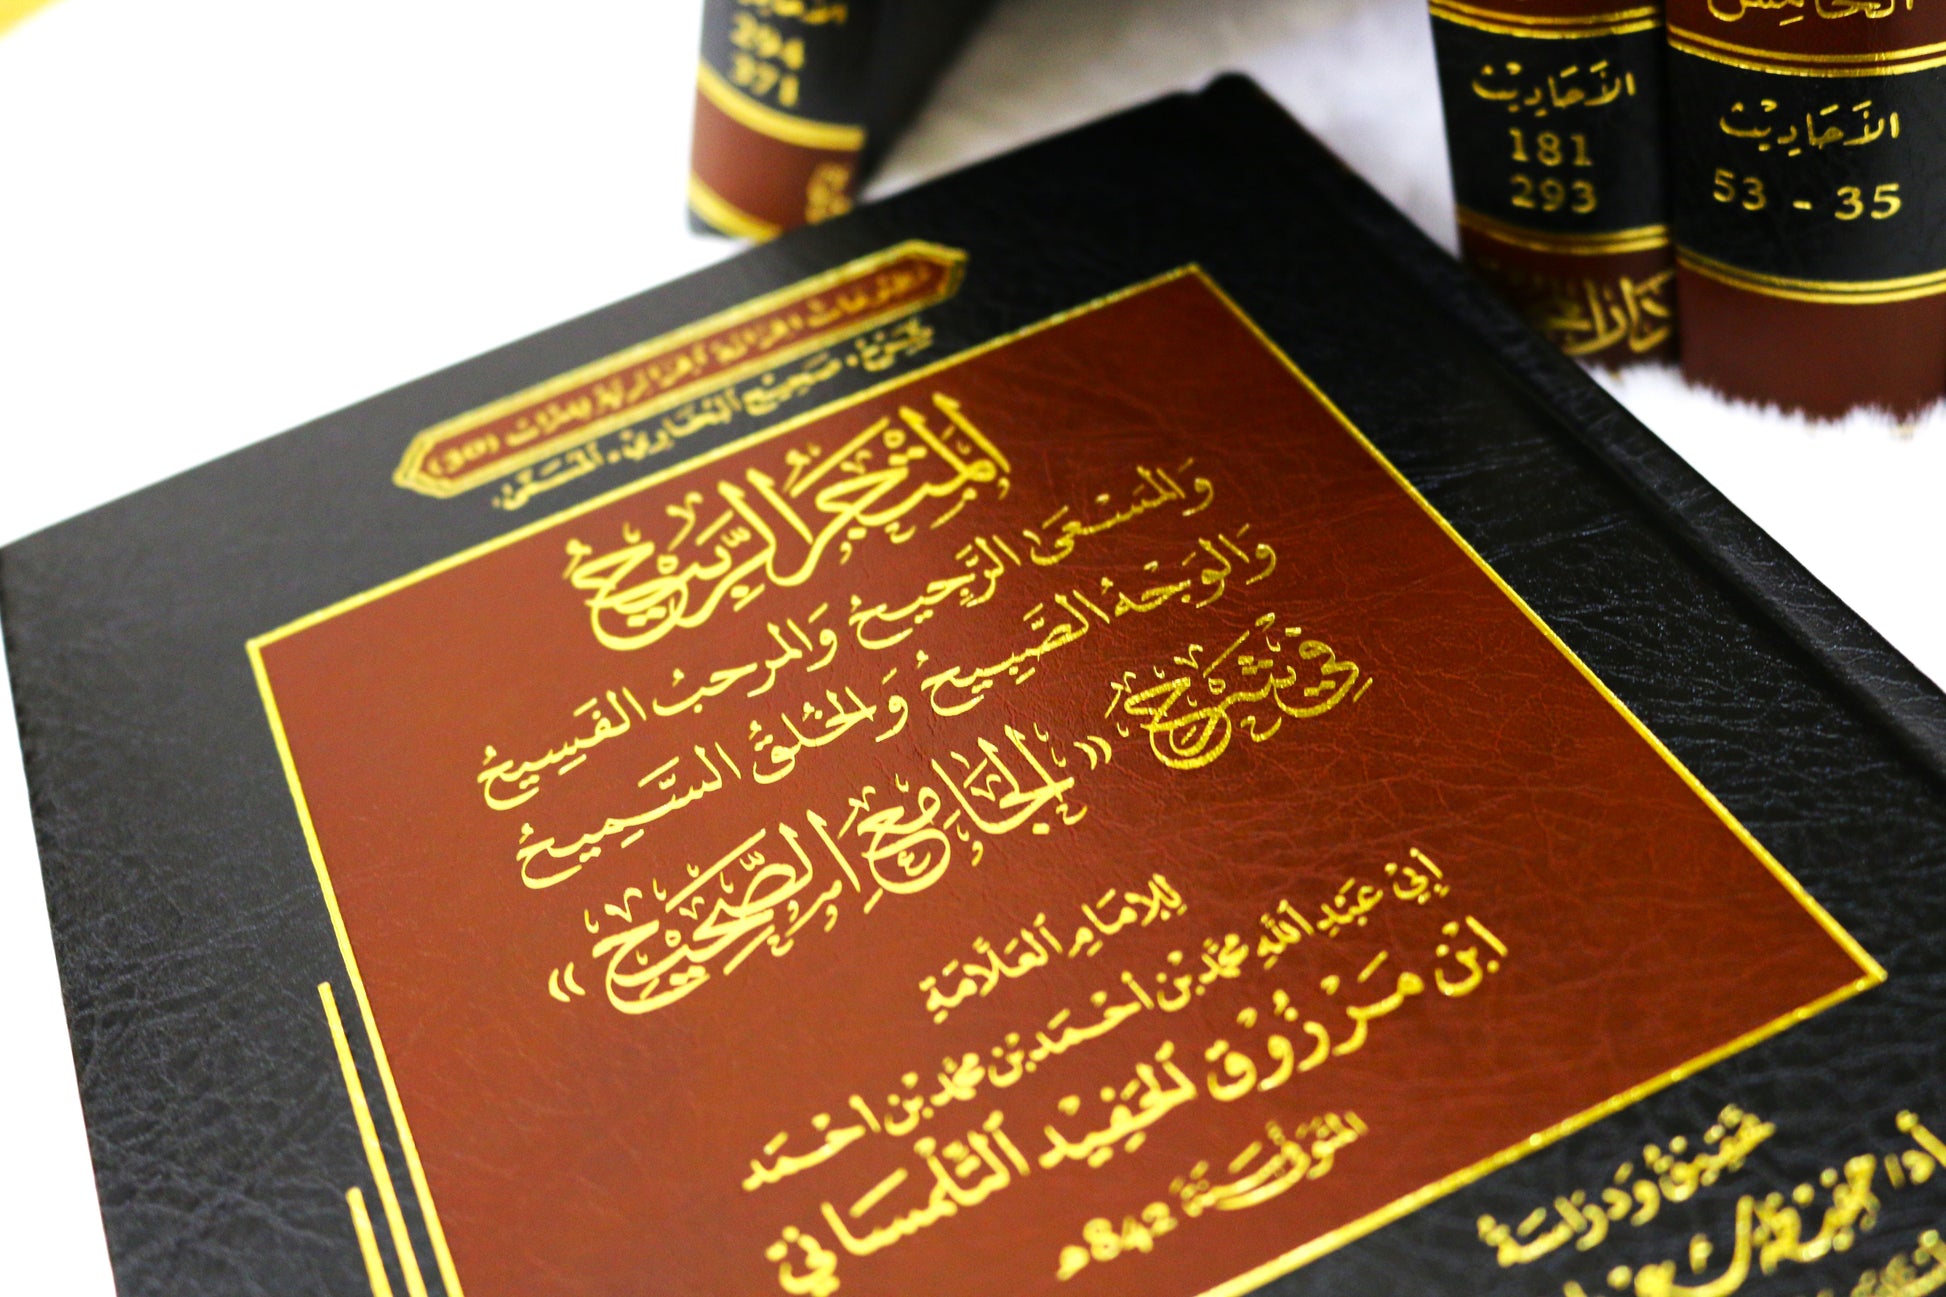 الأحاديث
294
371
الأَحَادِيْث
181
293
دَار
الخَامِسُ
الأَحَادِيْث
35 - 53
(30)
شرح، صَحِيْح البُخَارِيْ، المُسَمَّىٰ،
المَتْجَرُ الرَّبِيْحُ
وَالمَسْعَىٰ الرَّجِيحُ وَالمرحبُ الفَسِيحُ
وَالوَجْهُ الصَّبِيحُ وَالخُلقُ السَّمِيحُ
فِي شَرْحِ «الجَامِعِ الصَّحِيْحِ»
لِلإمَامِ العَلَّامَةِ
أَبِيْ عَبْدِ اللهِ محمَّد بْن أحْمَد بْن محمَّد بْن احْمَد
ابْن مَرْزُوْق الحَفِيْد التِّلْمسَانِيّ
المتَوَفَّى سَنَةَ 842هـ
تَحْقِيْقُ وَدِرَاسَةُ
أ.د/